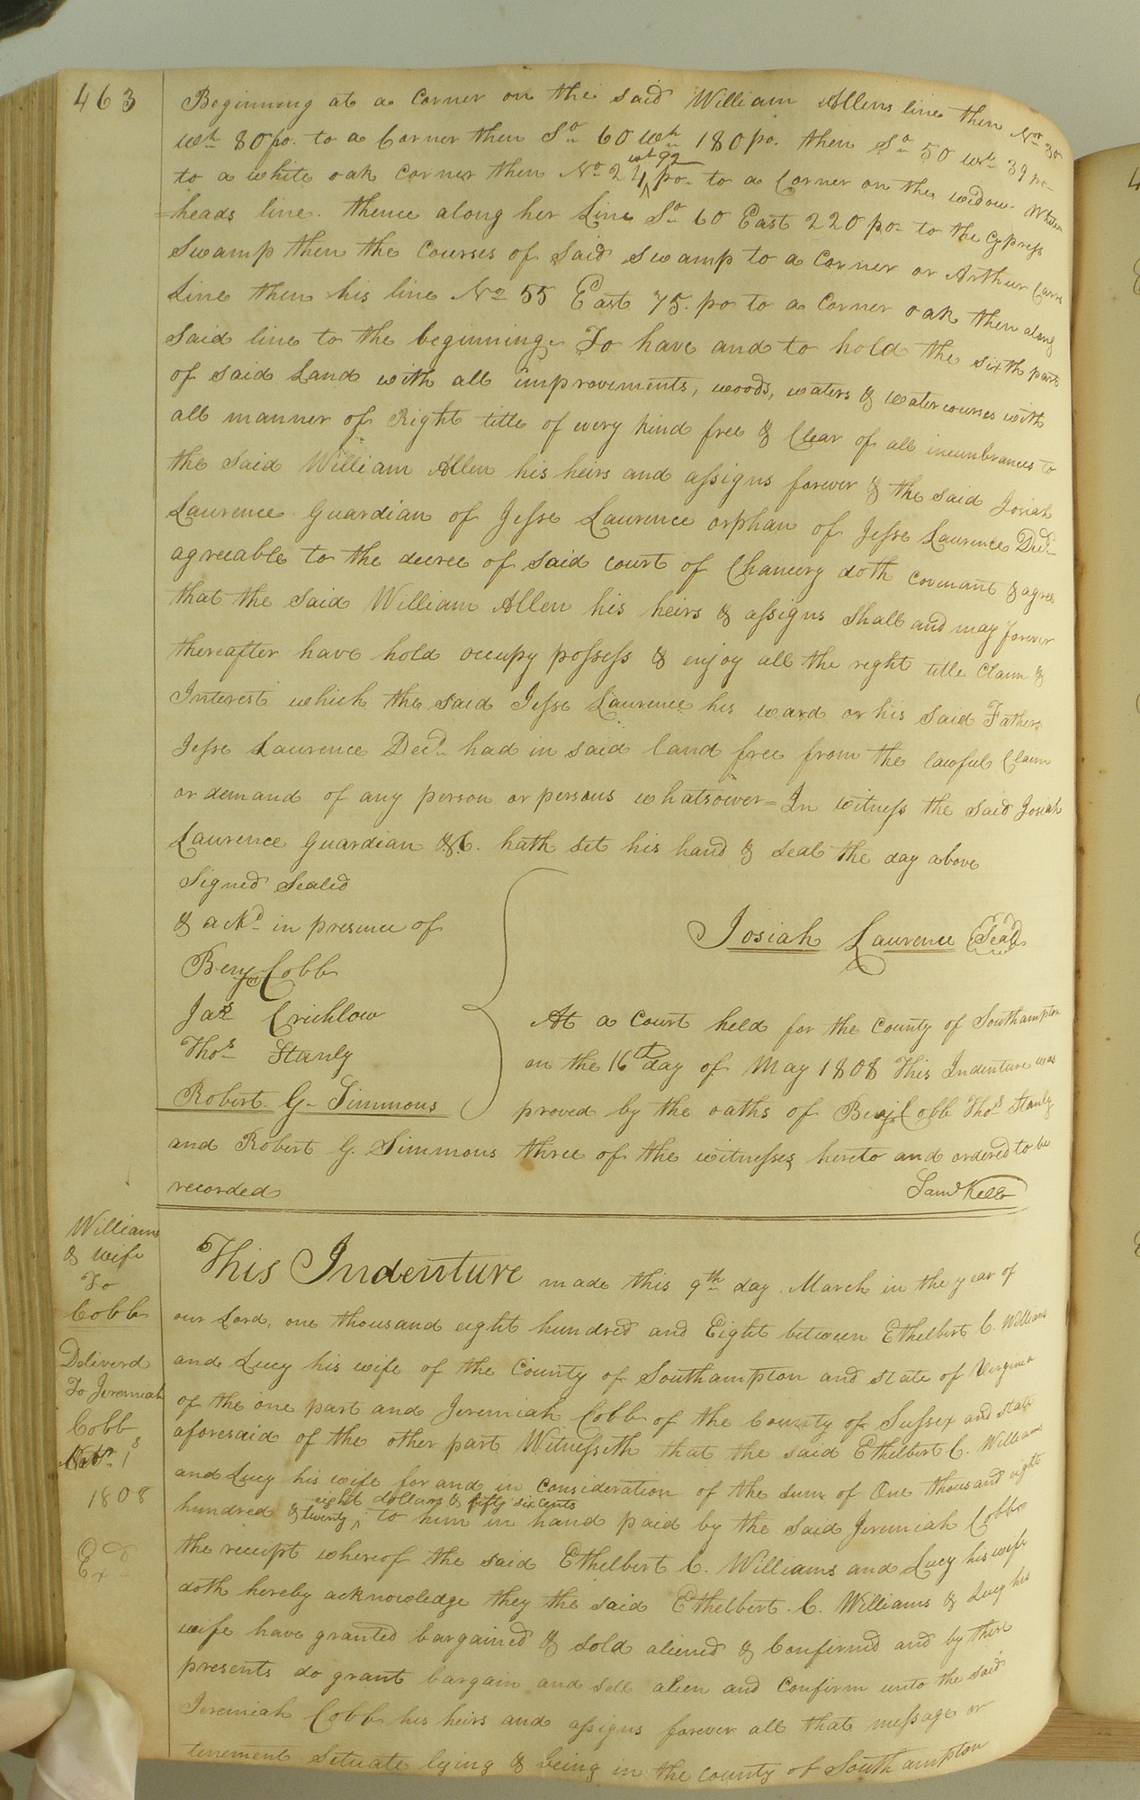 463
Beginning at a Corner on the said William Allens line then No 30
wt 80 po. to a Corner then So 60 wt 180 po. then So 50 wt 39 po
to a white oak corner then No 24 wt 92 po to a Corner on the widow White
heads line. thence along her Line So 60 East 220 po to the Cypress
Swamp then the Courses of said swamp to a Corner or Arthur Carrs
Line then his line No 55 East 75. po to a Corner oak then along
said line to the beginning. To have and to hold the sixth part
of said Land with all improvements, woods, waters & watercourses with
all manner of Right title of every kind free & Clear of all incumbrances to
the said William Allen his heirs and assigns forever & the said Josiah
Laurence Guardian of Jesse Laurence orphan of Jesse Laurence Decd
agreeable to the decree of said court of Chancery doth covenant & agree
that the said William Allen his heirs & assigns shall and may forever
thereafter have hold occupy possess & enjoy all the right title Claim &
Interest which the said Jesse Laurence his ward or his said Fathers
Jesse Laurence Decd had in said land free from the lawful Claim
or demand of any person or persons whatsoever = In witness the said Josiah
Laurence Guardian &C. hath set his hand & seal the day above
Signed Sealed
& ackd in presence of
Benjn Cobb
Jas Crichlow
Thos Stanly
Robert G. Simmons
Josiah Laurence Seal
At a Court held for the County of Southampton
on the 16th day of May 1808 This Indenture was
proved by the oaths of Benj Cobb Thos Stanly
and Robert G. Simmons three of the witnesses hereto and ordered to be
recorded
Saml Kello
Williams
& wife
To
Cobb
Deliverd
To Jeremiah
Cobb
1s
1808
Exd
This Indenture made this 9th day March in the year of
our Lord, one thousand eight hundred and Eight between Ethelbert C. Williams
and Lucy his wife of the County of Southampton and state of Virginia
of the one part and Jeremiah Cobb of the County of Sussex and state
aforesaid of the other part Witnesseth that the said Ethelbert C. Williams
and Lucy his wife for and in Consideration of the sum of One thousand eight
hundred & twenty eight dollars & fifty six cents to him in hand paid by the said Jeremiah Cobb
the receipt whereof the said Ethelbert C. Williams and Lucy his wife
doth hereby acknowledge they the said Ethelbert C. Williams & Lucy his
wife have granted bargained & sold aliened & Confirmed and by these
presents do grant bargain and sell alien and Confirm unto the said
Jeremiah Cobb his heirs and assigns forever all that message or
tenement Situate lying & being in the County of Southampton